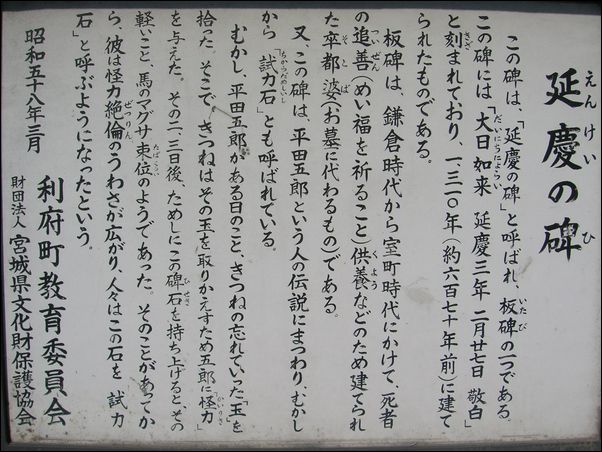 延慶の碑
えんけい ひ
この碑は、「延慶の碑」と呼ばれ、板碑の一つである。
いたび
この碑には「大日如来 延慶三年 二月廿七日 敬白」
だいにちにょらい
と刻まれており、一三一〇年(約六百七十年前)に建て
きざ
られたものである。
板碑は、鎌倉時代から室町時代にかけて、死者
の追善(めい福を祈ること)供養などのため建てられ
ついぜん くよう
た卒都婆(お墓に代わるもの)である。
そとば
又、この碑は、平田五郎という人の伝説にまつわり、むかし
から「試力石」とも呼ばれている。
ちからだめしいし
むかし、平田五郎がある日のこと、きつねの忘れていった「玉」を
拾った。そこで、きつねはその玉を取りかえすため五郎に「怪力」
かいりき
を与えた。その二、三日後、ためしにこの碑石を持ち上げると、その
ひせき
軽いこと、馬のマグサ束位のようであった。そのことがあってか
たばくらい
ら、彼は怪力絶倫のうわさが広がり、人々はこの石を「試力
ぜつりん
石」と呼ぶようになったという。
昭和五十八年三月
利府町教育委員会
財団法人 宮城県文化財保護協会